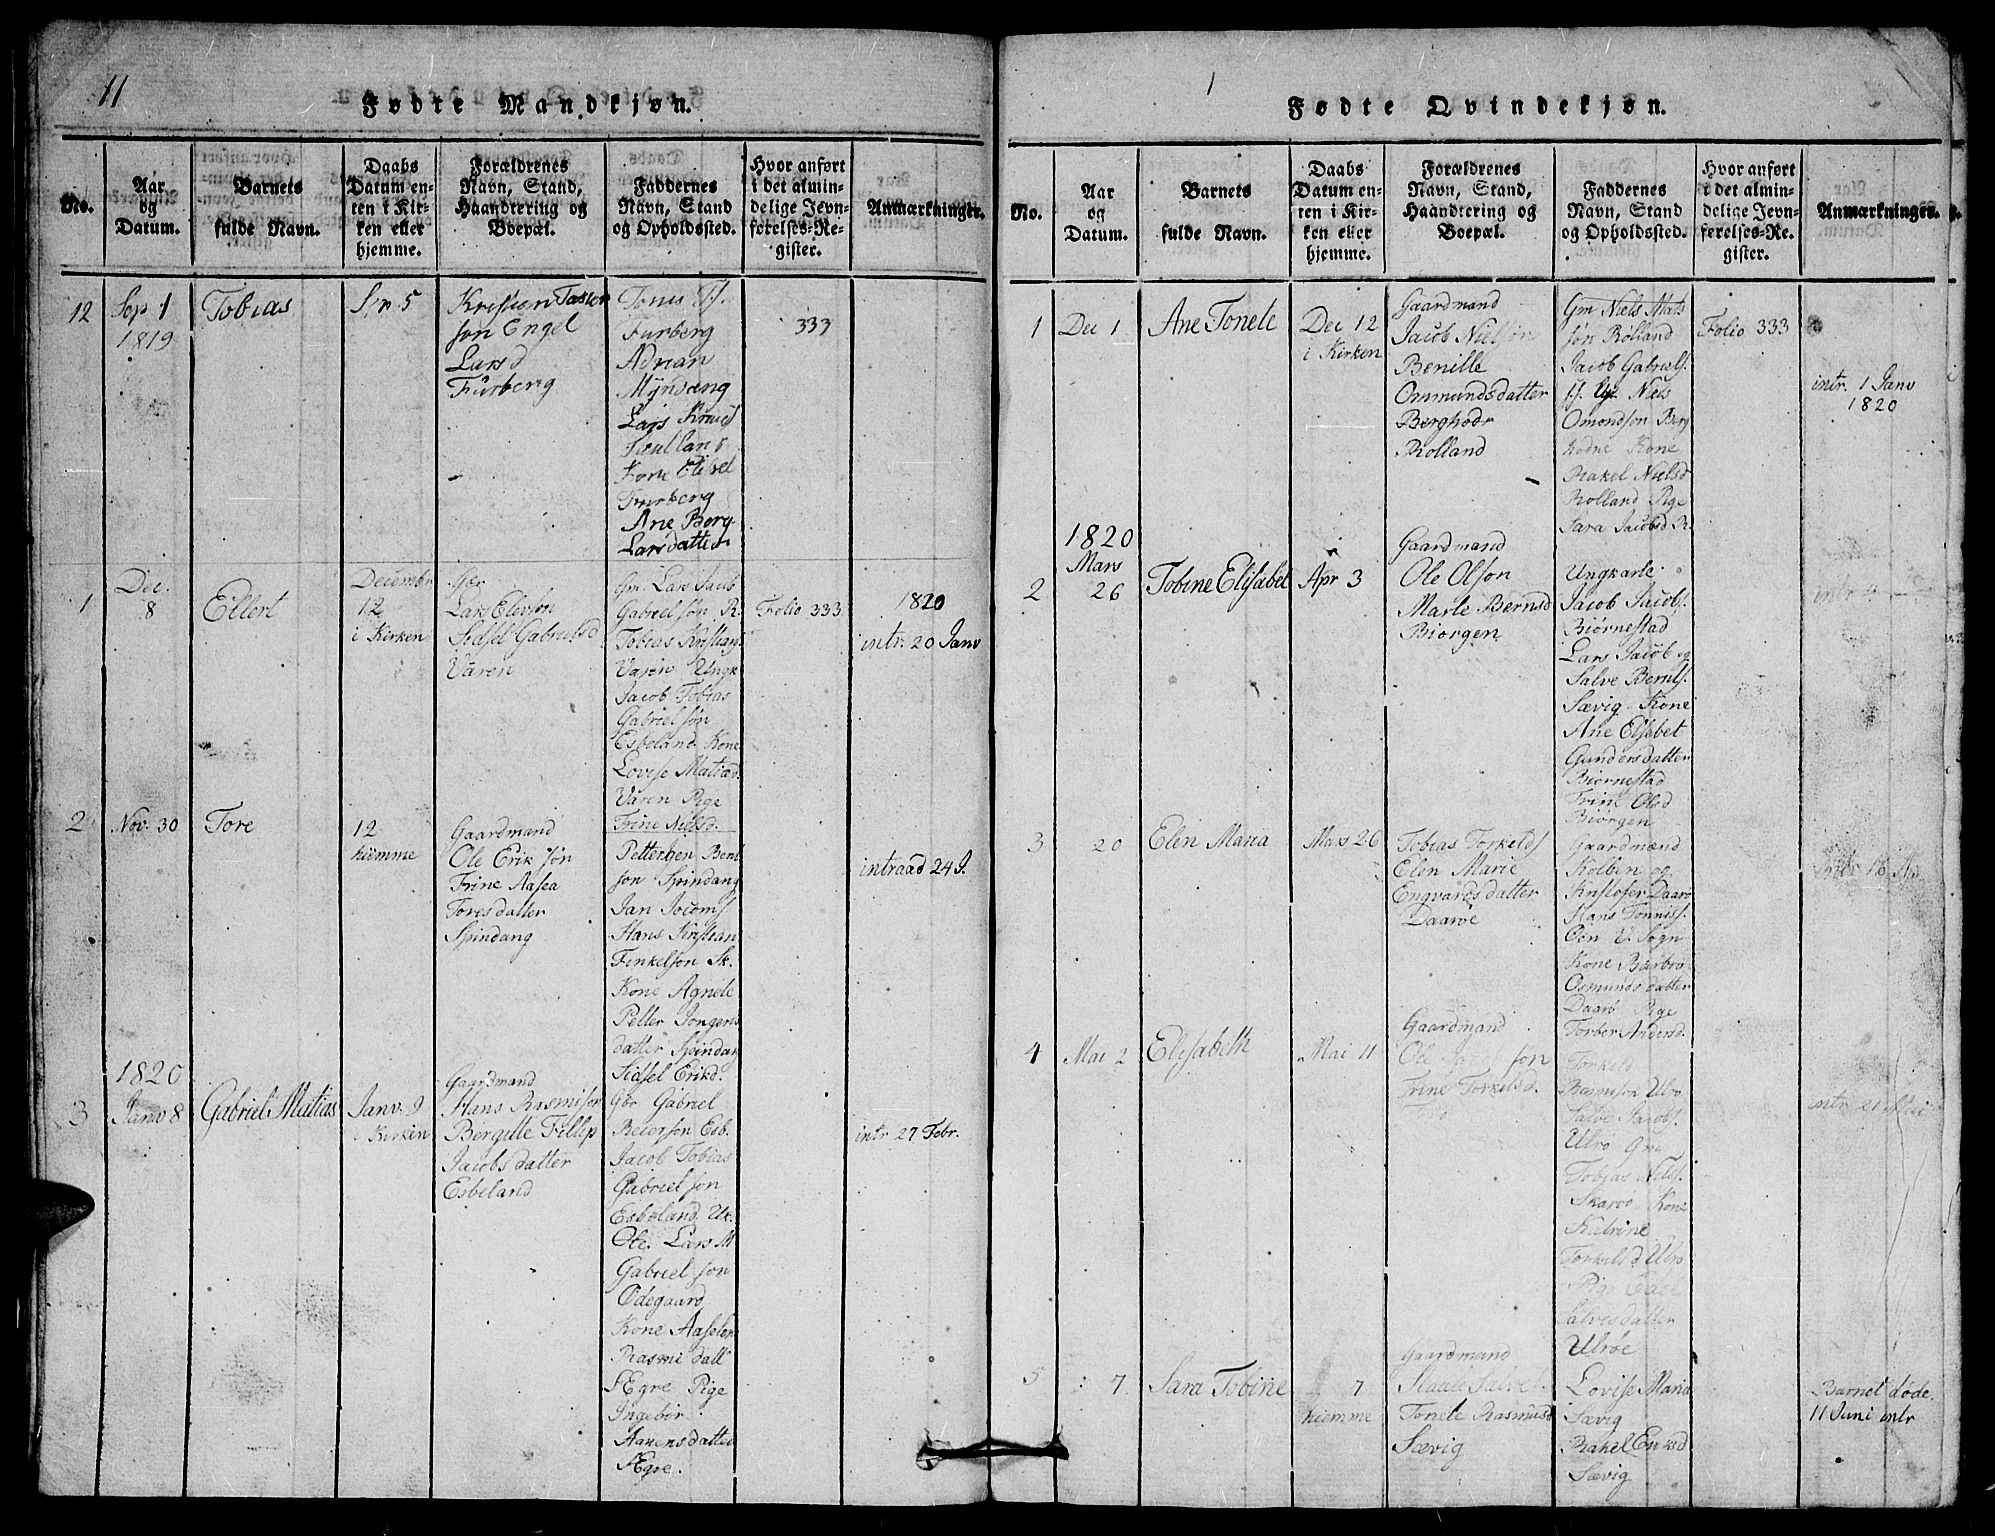 11
Fødte Mandkjøn.
No.
Aar
og
Datum.
Barnets
fulde Navn.
Daabs
Datum en-
ten i Kir-
ken eller
hjemme.
Forældrenes
Navn, Stand,
Haandtering og
Boepæl.
Faddernes
Navn, Stand
og Opholdssted.
Hvor anført
i det almin-
delige Jevn-
førelses-Re-
gister.
Anmærkninger.
12
Sep 1
1819
Tobias
Sep 5
Kristien
søn Engel
Larsd
Furberg
Furberg
Adrian
Lars
Kone Elisel
Furberg
Ane Berg.
Larsdatter
333
1
Dec.
8
Eilert
Decembr
12
i Kirken
Lars Elevsøn
Sidsel Gabrielsd
Varen
Gm. Lars Jacob
Gabrielsøn R.
Tobias Kristians
Varen Ungk
Jacob Tobias
Gabrielsøn
Esbeland Kone
Lovise Matiæd.
Varen Pige
Trine Nielsd.
Folio 333
1820
intr. 20 Janv
2
Nov. 30
Tore
12
hiemme
Gaardmand
Ole Erik søn
Trine Aasea
Toresdatter
Spindang
Pettersen Bent
søn Spindang
Jan Jocoms
Hans Kristian
Tenkelsøn Sk.
Kone Agnete
Petter Jongens
datter Spindan
Sidsel Erikd.
intraad 24 J.
1820
3
Janv 8
Gabriel Matias
Janv. 9
i Kirken
Gaardmand
Hans Rasmisøn
Bergitte Fillip
Jacobsdatter
Esbeland
Gbr Gabriel
Reiersøn Esb.
Jacob Tobias
Gabrielsøn
Esbeland Uk.
Ole. Lars M
Gabrielsøn
Ødegaard
Kone Aaselen
Rasmi datt
Ægre Pige
Ingebør
Aanensdatter
Ægre.
intr 27 Febr.
1
Fødte Qvindekjøn.
No.
Aar
og
Datum.
Barnets
fulde Navn.
Daabs
Datum en-
ten i Kir-
ken eller
hjemme.
Forældrenes
Navn, Stand,
Haandtering og
Boepæl.
Faddernes
Navn, Stand
og Opholdssted.
Hvor anført
i det almin-
delige Jevn-
førelses-Re-
gister.
Anmærkninger.
1
Dec 1
Ane Tonete
Dec 12
i Kirken
Gaardmand
Jacob Nielsøn
Benille
Ommundsdatter
Berghodr
Rolland
Gm Niels Mats
søn Rolland
Jacob Gabriels.
Niels
Omondsøn Berg
hodne Kone
Rakel Nielsd
Rolland Pige
Sara Jacobsd R.
Folio 333
intr. 1 Janv
1820
1820
Mars
2
26
Tobine Elisabet
Apr 3
Gaardmand
Ole Olsøn
Marte Bernsd
Biorgen
Ungkarle
Jacob Jacobs.
Biørnestad
Lars Jacob og
Salve Bernts.
Sævig Kone
Ane Elsebet
Gundersdatter
Biørnestad
Trine Olsd
Biørgen
intr
3
20
Elen Maria
Mars 26
Tobias Torkelds
Elen Marie
Engvardsdatter
Daarøe
Gaardmænd
Kolben og
Kristofer Daarø
Hans Tønnis.
Oen V. Sogn
Kone Barbro
Osmundsdatter
Daarø Pige
Torber Andersd.
16 Ap.
4
Mai 2
Elisabeth
Mai 11
Gaardmand
Ole Jacobsøn
Trine Torkelsd.
Torkeld
Rasmisøn Ulrø
Salve Jacobs.
Ulrø Gm
Tobias Nils.
Skarvo Kone
Katrine
Torkelsd Ulro
Pige
Salvesdatter
Ulrøe
intr 21 Mai
5
7
Sara Tobine
7
hiemme
Gaardmand
Staale Salves.
Tonete Rasmusd
Sævig
Lovise Maria
Sævig
Rakel Eriksd
Sævig
Barnet døde
11 Juni intr